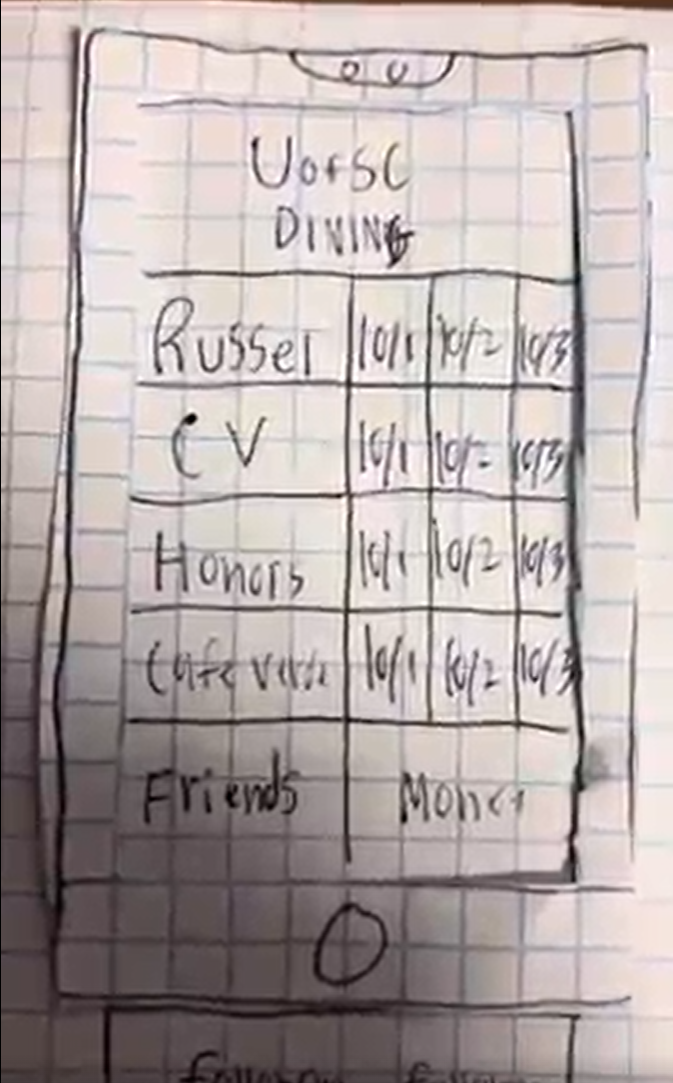 UofSC
DINING
Russel 10/1 10/2 10/3
CV 10/1 10/2 10/3
Honors 10/1 10/2 10/3
Cafe 10/1 10/2 10/3
Friends Money